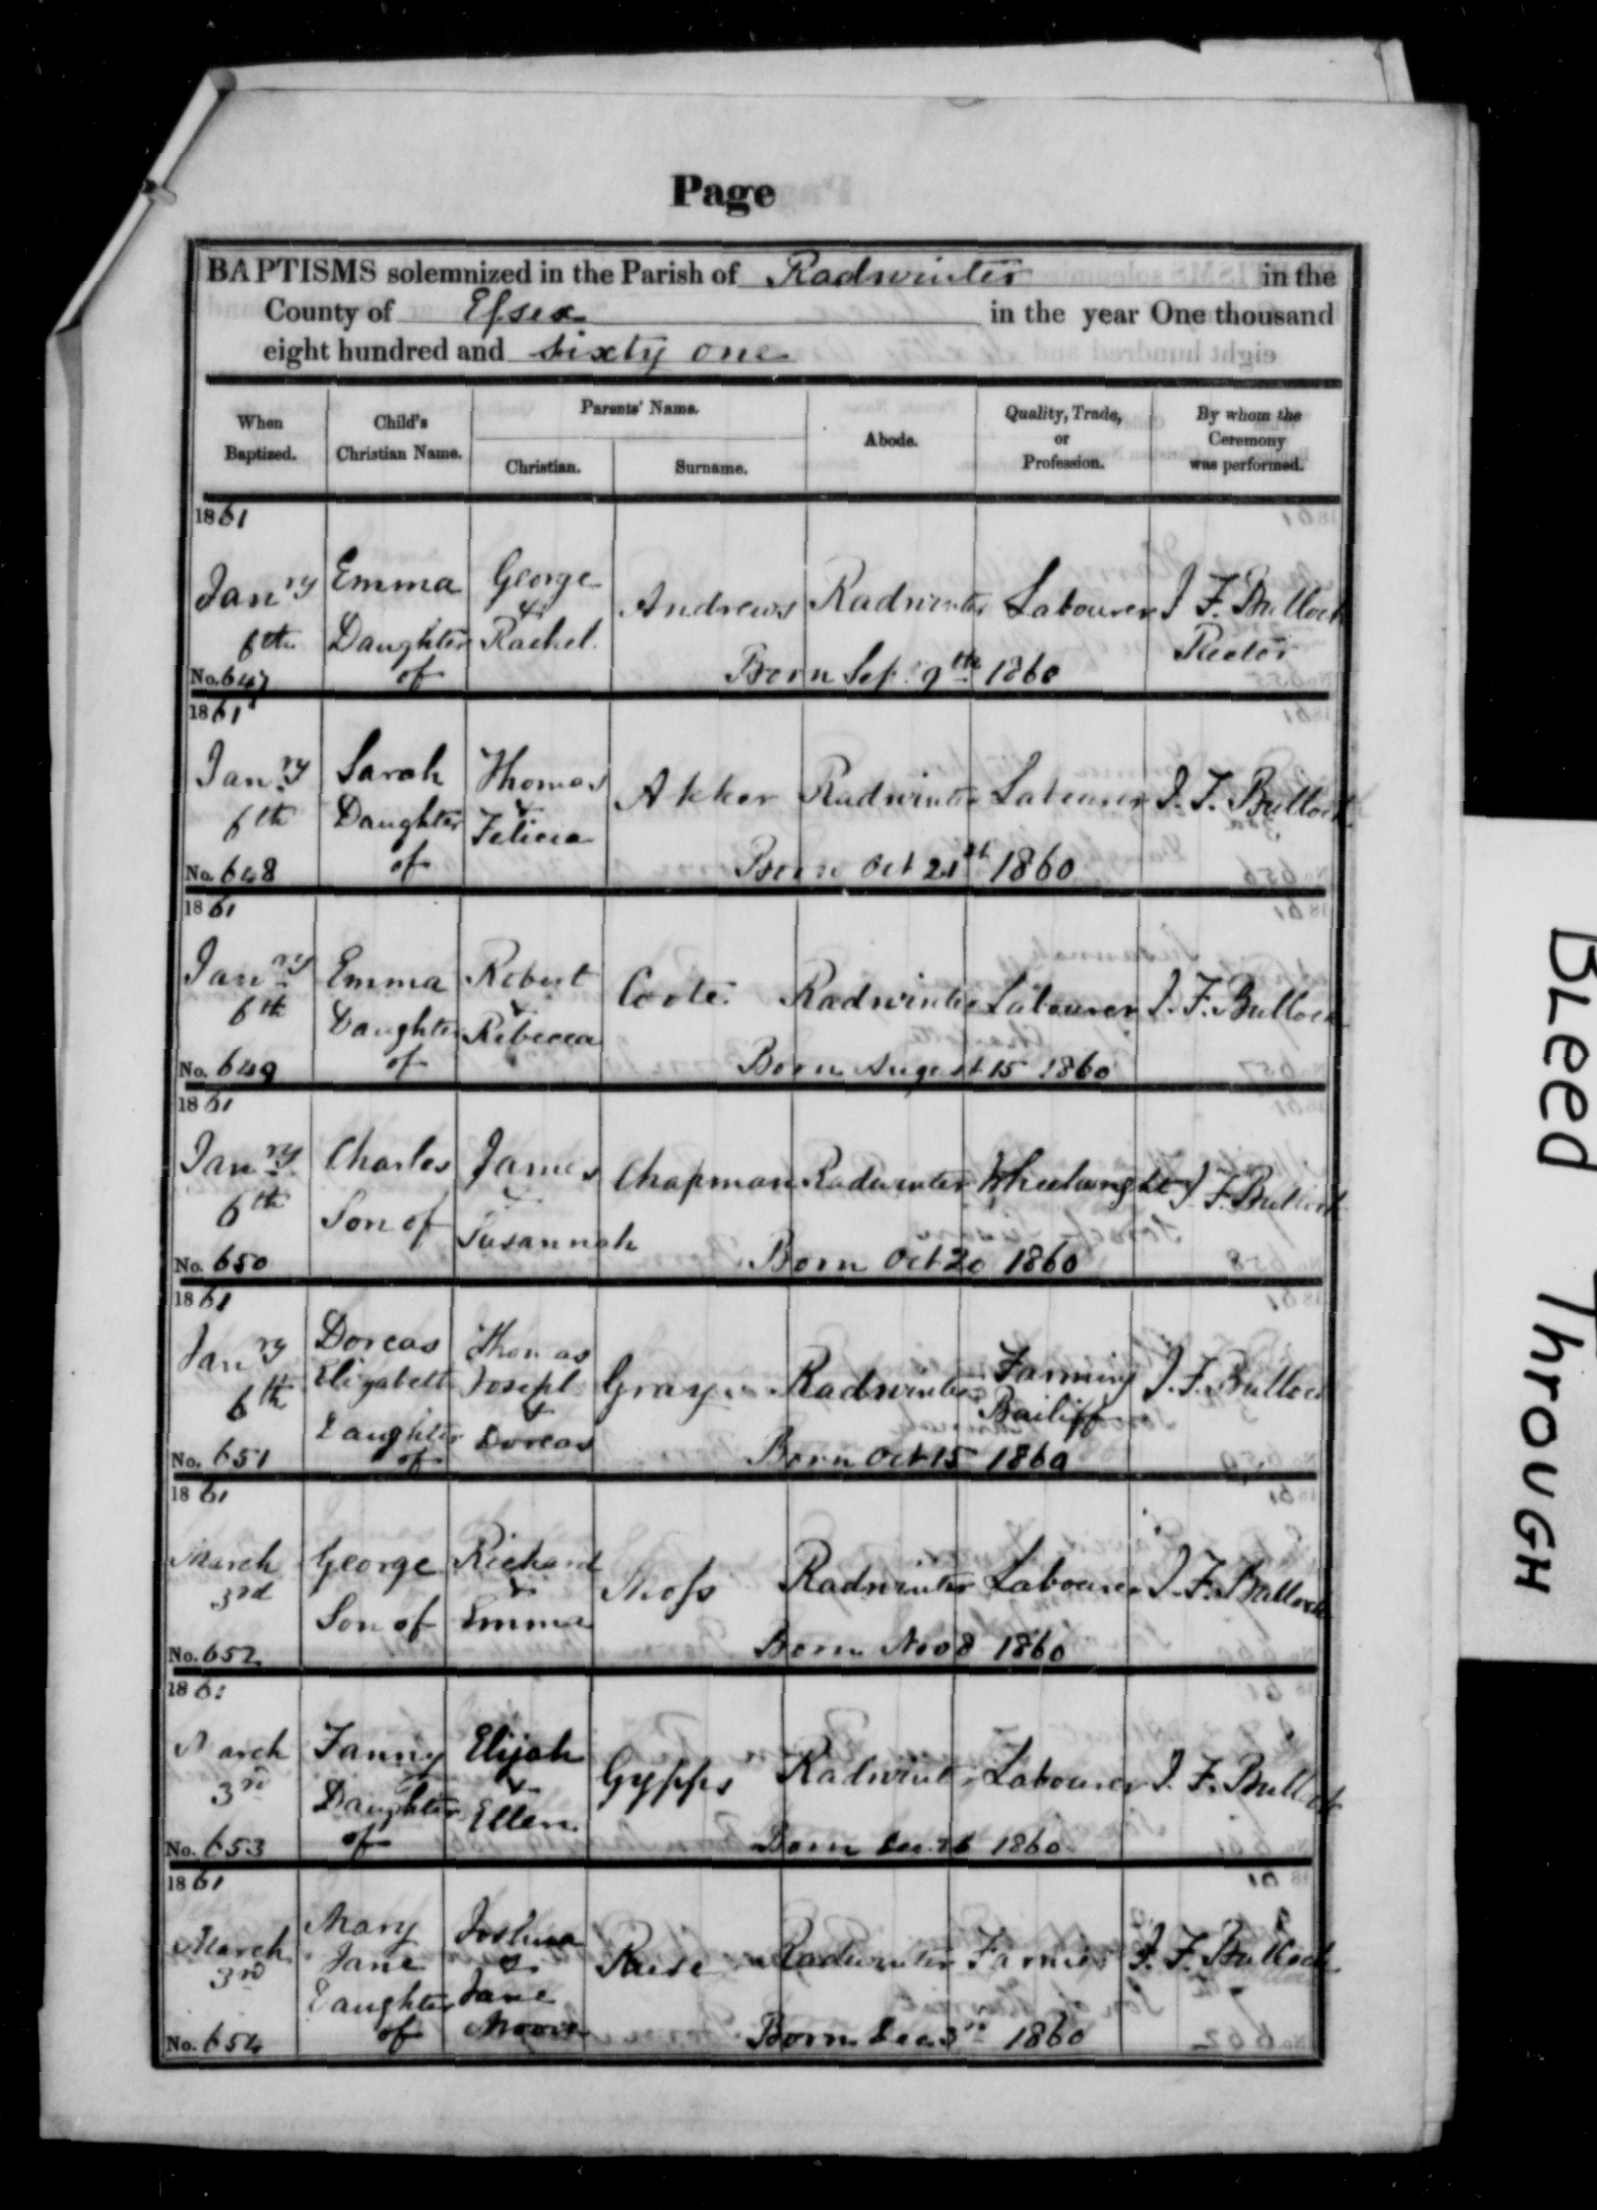 Page
BAPTISMS solemnized in the Parish of Radwinter in the
County of Essex in the year One thousand
eight hundred and sixty one
When Baptized. Child's Christian Name. Parents' Name. Christian. Surname. Abode. Quality, Trade, or Profession. By whom the Ceremony was performed.
1861
Jan.ry 6th Emma Daughter of George & Rachel Andrews Radwinter Labourer J. F. Bullock Rector
No. 647 Born Sep. 9th 1860
1861
Jan.ry 6th Sarah Daughter of Thomas & Felicia Akker Radwinter Labourer J. F. Bullock
No. 648 Born Oct 21st 1860
1861
Jan.ry 6th Emma Daughter of Robert & Rebecca Coote Radwinter Labourer J. F. Bullock
No. 649 Born August 15 1860
1861
Jan.ry 6th Charles Son of James & Susannah Chapman Radwinter Wheelwright J. F. Bullock
No. 650 Born Oct 20 1860
1861
Jan.ry 6th Dorcas Elizabeth Daughter of Thomas Joseph & Dorcas Gray Radwinter Farming Bailiff J. F. Bullock
No. 651 Born Oct 15 1860
1861
March 3rd George Son of Richard & Emma Moss Radwinter Labourer J. F. Bullock
No. 652 Born Nov 8 1860
1861
March 3rd Fanny Daughter of Elijah & Ellen Gypps Radwinter Labourer J. F. Bullock
No. 653 Born Dec. 26 1860
1861
March 3rd Mary Jane Daughter of Joshua & Jane Moore Radwinter Farmer J. F. Bullock
No. 654 Born Dec 3rd 1860
BLeed Through